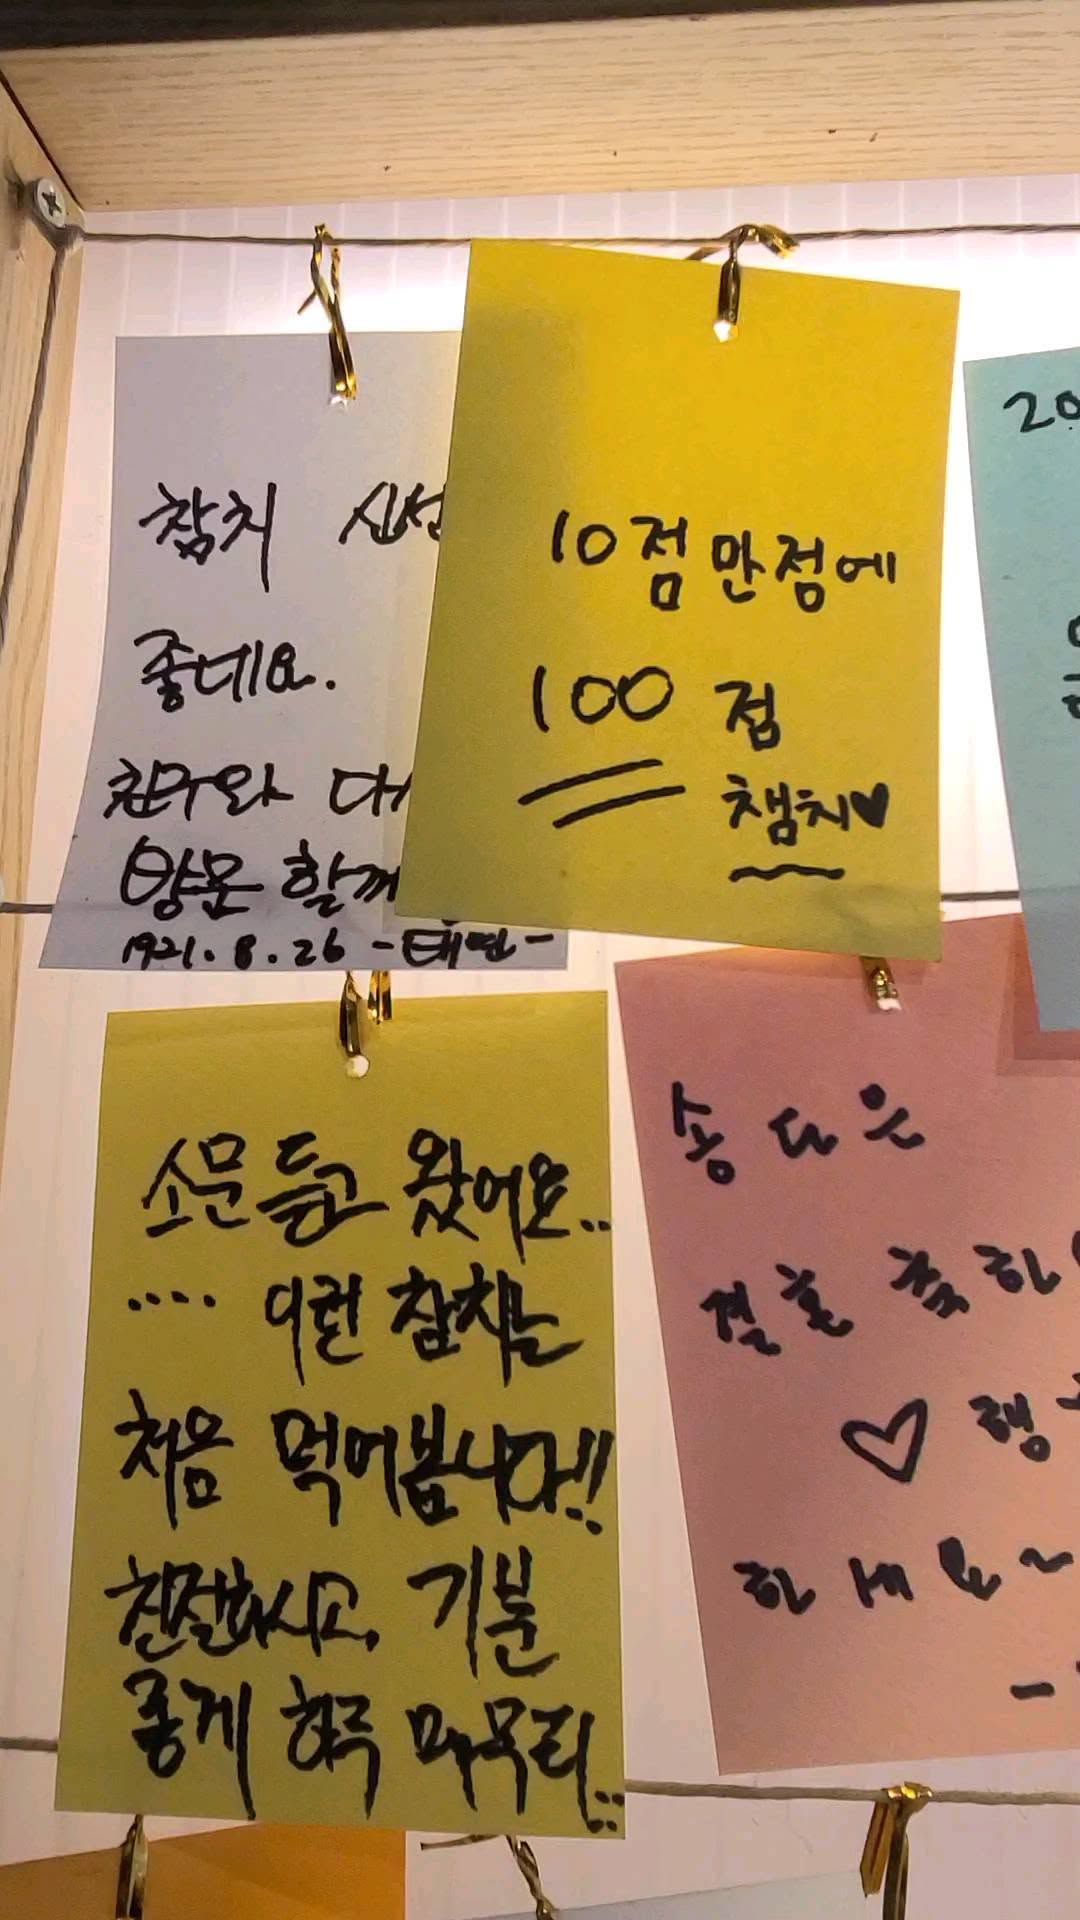 참치 신선
좋네요.
친구와 다시
방문 할께
1921. 8. 26 -태민-
10점 만점에
100 점
챔치♥
20
소문듣고 왔어요..
.... 이런 참치는
처음 먹어봅니다!!
친절하시고, 기분
좋게 하루 마무리..
송다은
결혼 축하
♡ 행
하세요~